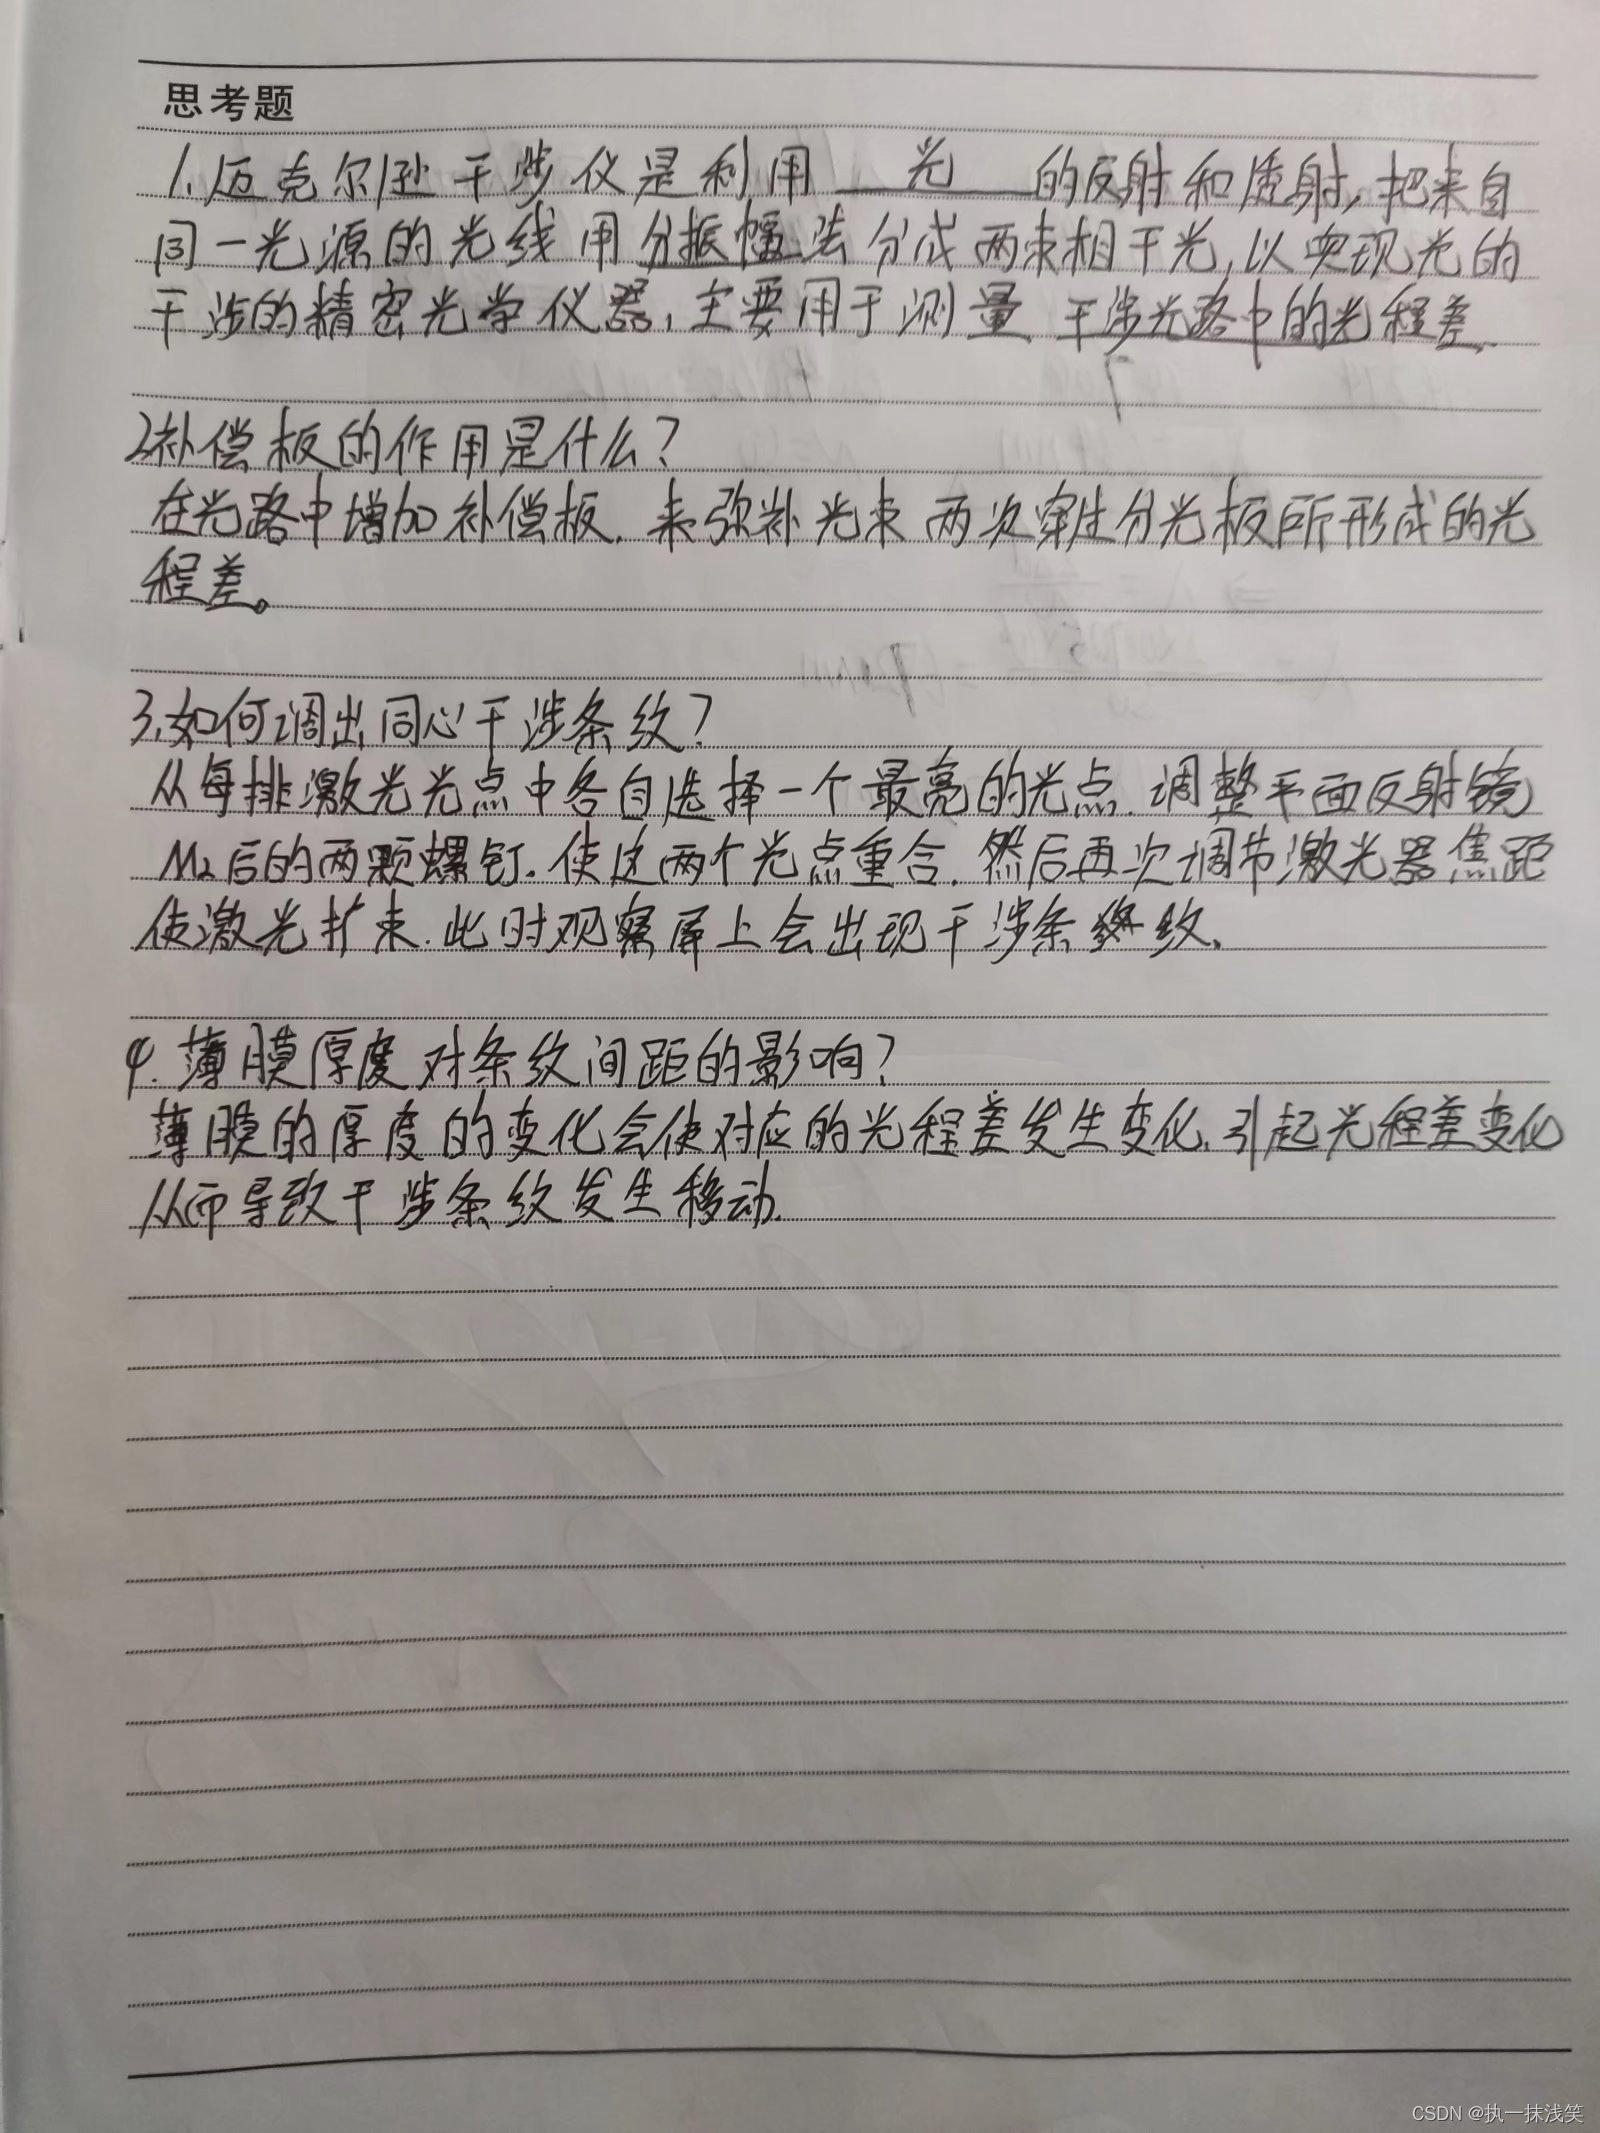 思考题
1.迈克尔逊干涉仪是利用 光 的反射和透射,把来自
同一光源的光线用分振幅法分成两束相干光,以实现光的
干涉的精密光学仪器,主要用于测量 干涉光路中的光程差.
2.补偿板的作用是什么?
在光路中增加补偿板.来弥补光束两次穿过分光板所形成的光
程差。
3.如何调出同心干涉条纹?
从每排激光光点中各自选择一个最亮的光点.调整平面反射镜
M2后的两颗螺钉.使这两个光点重合.然后再次调节激光器焦距
使激光扩束.此时观察屏上会出现干涉条纹.
4.薄膜厚度对条纹间距的影响?
薄膜的厚度的变化会使对应的光程差发生变化.引起光程差变化
从而导致干涉条纹发生移动.
CSDN @执一抹浅笑